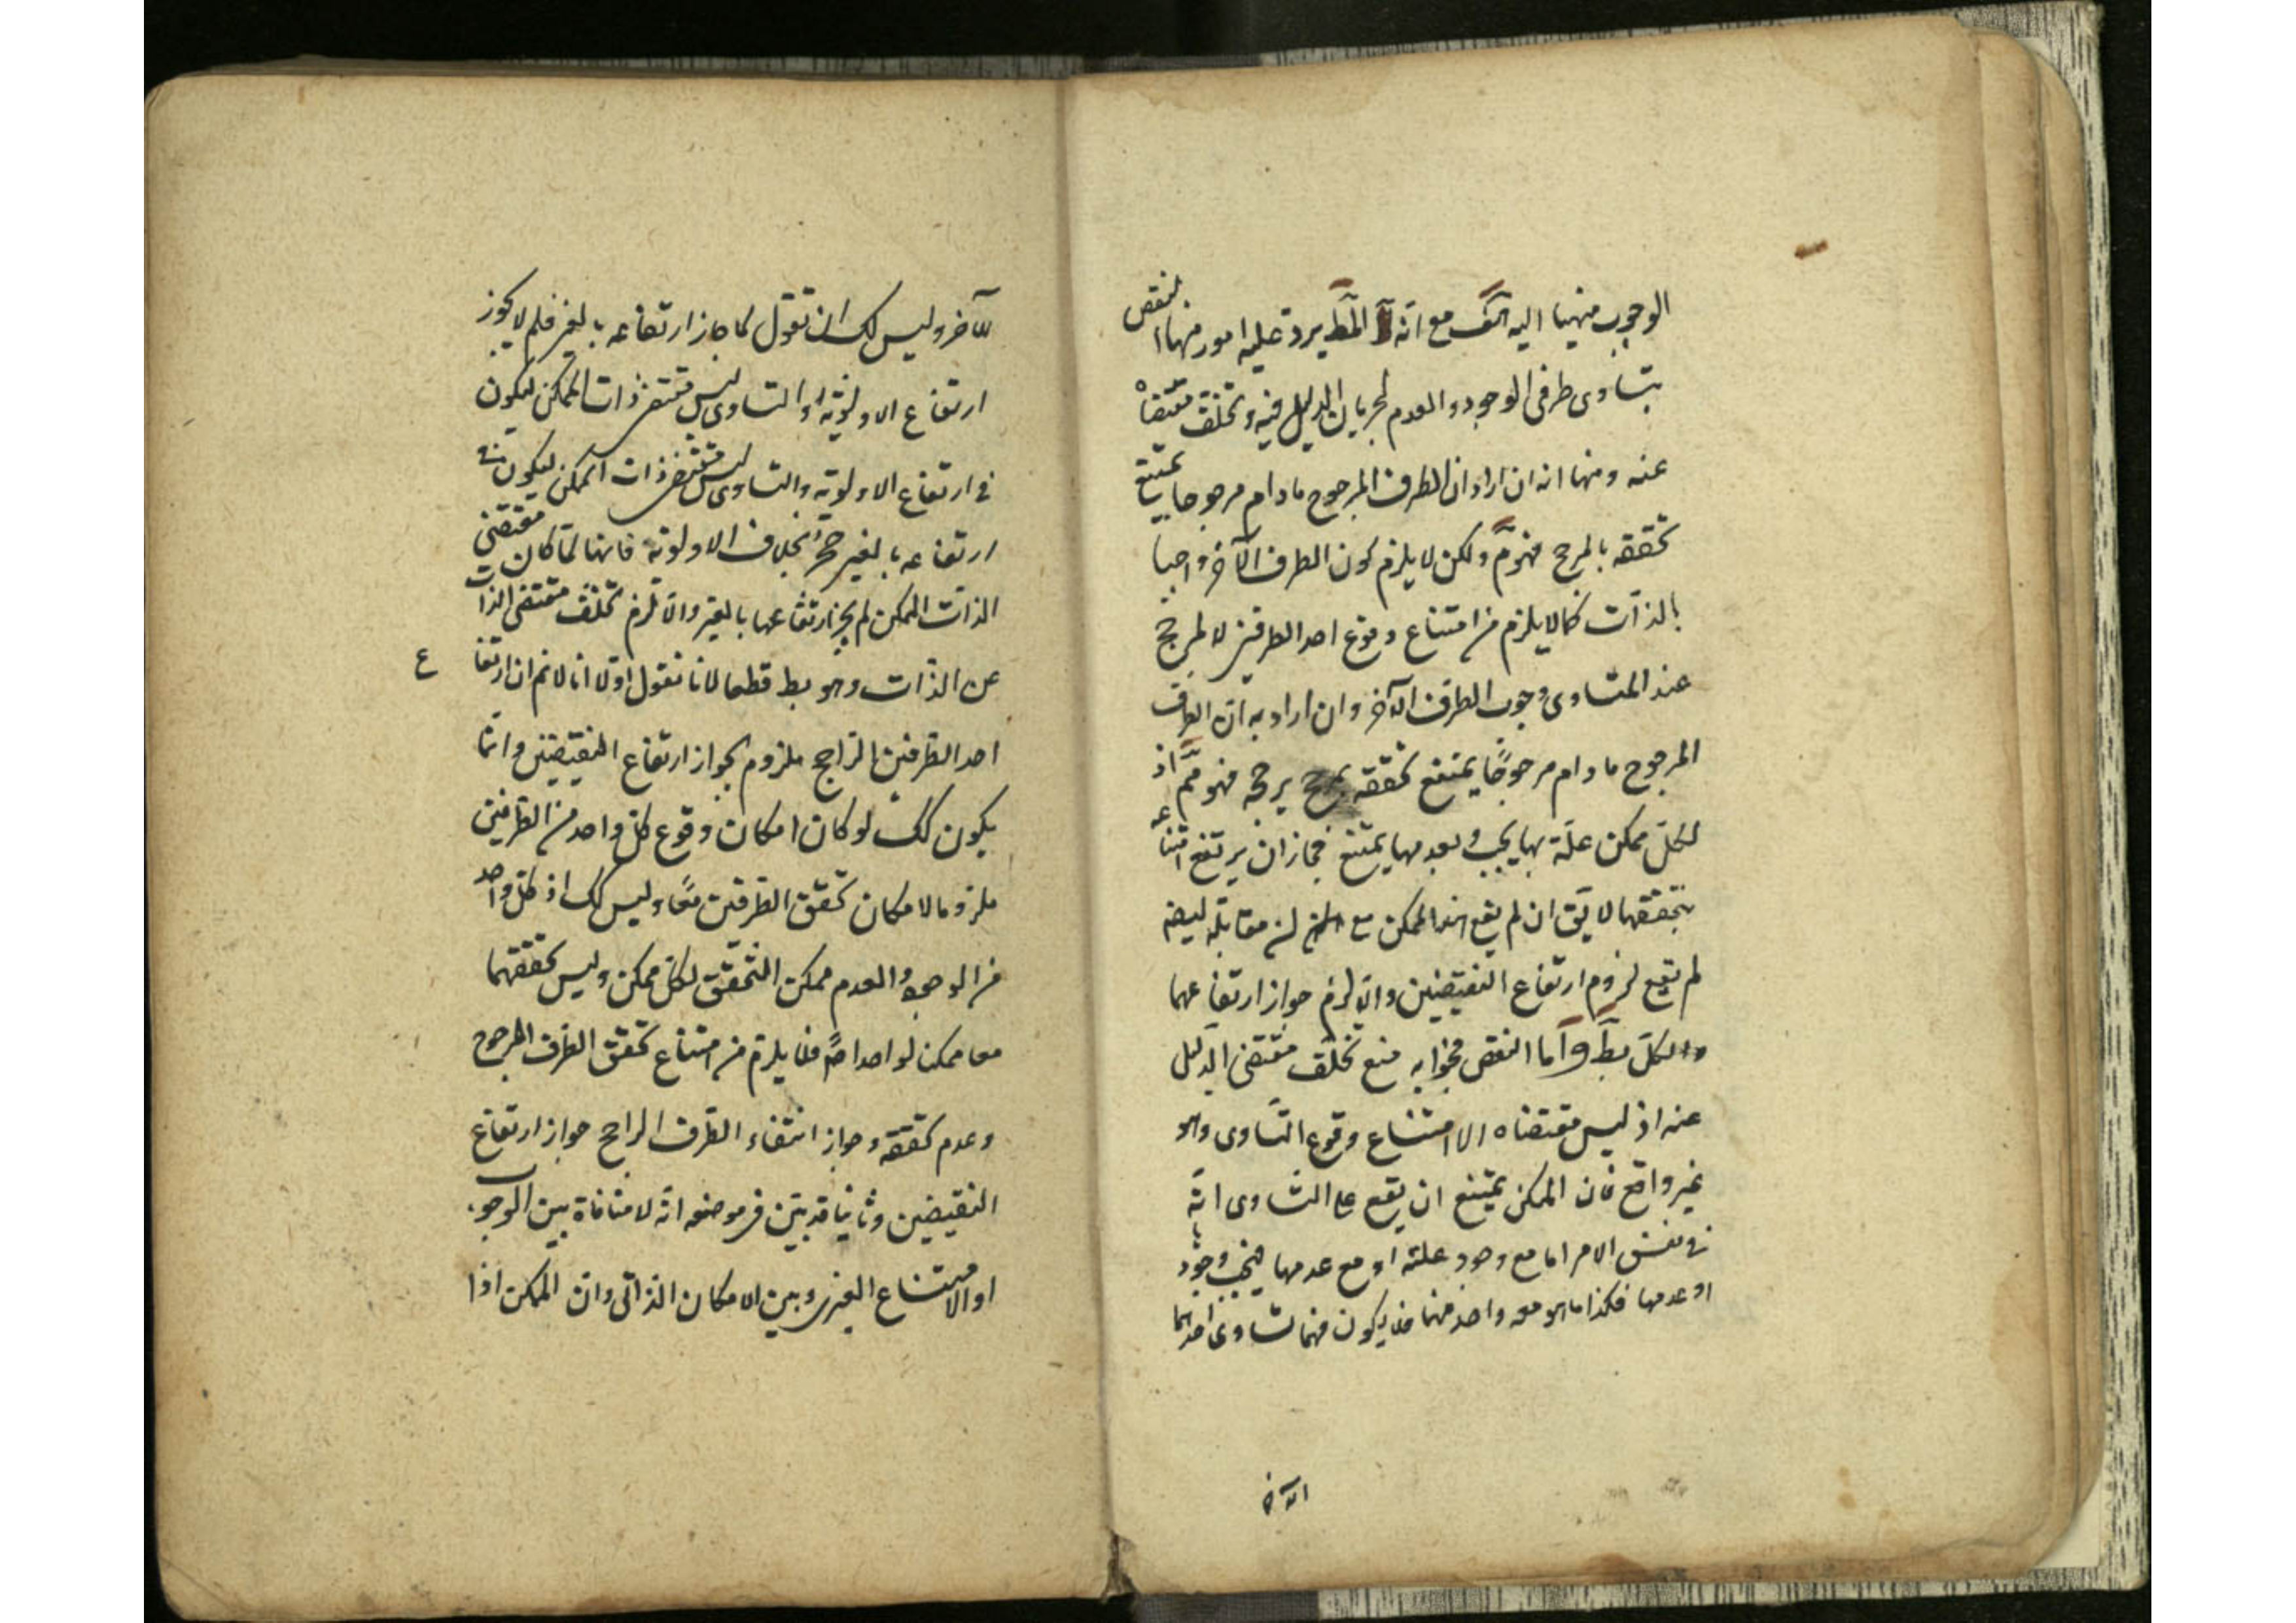 الوجوب منهيا اليه آلكف مع انه المط يرد عليه امور منها النقض
بتساوى طرفى الوجود والعدم لجريان الدليل فيه وتخلف مقتضاه
عنه ومنها انه ان اراد ان الطرف المرجوح مادام مرجوحا يمتنع
تحققه بالمرجح فهو مم ولكن لا يلزم كون الطرف الآخر واجبا
بالذات كما لا يلزم من امتناع وقوع احد الطرفين لا لمرجح
عند المتساوى وجوب الطرف الآخر وان اراد به ان الطرف
المرجوح مادام مرجوحا يمتنع تحققه بمرجح يرجحه فهو مم اذ
لكل ممكن علة بها يجب وبعدمها يمتنع فجاز ان يرتفع امتناعه
بتحققها لا يق ان لم يقع هذا الممكن مع مقابله ايضا
لم يقع لزوم ارتفاع النقيضين والا لزم جواز ارتفاعهما
والكل بط وآما النقض فجوابه منع تخلف مقتضى الدليل
عنه اذ ليس مقتضاه الا امتناع وقوع التساوى وهو
غير واقع فان الممكن يمتنع ان يقع على التساوى انه
فى نفس الامر اما مع وجود علته او مع عدمها فيجب وجودها
او عدمها فكذا ما هو معه واحد منهما فلا يكون فيهما تساوى احدهما
الآخر
للآخر وليس لك ان تقول كما جاز ارتفاعه بالغير فلم لا يجوز
ارتفاع الاولوية او التساوى ليس مقتضى ذات الممكن ليكون
فى ارتفاع الاولوية والتساوى ليس مقتضى ذات الممكن ليكون فى
ارتفاعه بالغير حج بخلاف الاولوية فانها لما كان مقتضى
الذات الممكن لم يجز ارتفاعها بالغير والا لزم تخلف مقتضى الذات
عن الذات وهو بط قطعا لانا نقول اولا انا لا نم ان ارتفاع
احد الطرفين الراجح ملزوم لجواز ارتفاع النقيضين وانما
يكون كك لو كان امكان وقوع كل واحد من الطرفين
ملزوما لامكان تحقق الطرفين معا وليس كك اذ كل واحد
من الوجود والعدم ممكن التحقق لكل ممكن وليس تحققهما
معا ممكن لواحد اصلا فلا يلزم من امتناع تحقق الطرف المرجوح
وعدم تحققه وجواز انتفاء الطرف الراجح جواز ارتفاع
النقيضين وثانيا قد بين فى موضعه انه لا منافاة بين الوجوب
او الامتناع الغيرى وبين الامكان الذاتى وان الممكن اذا